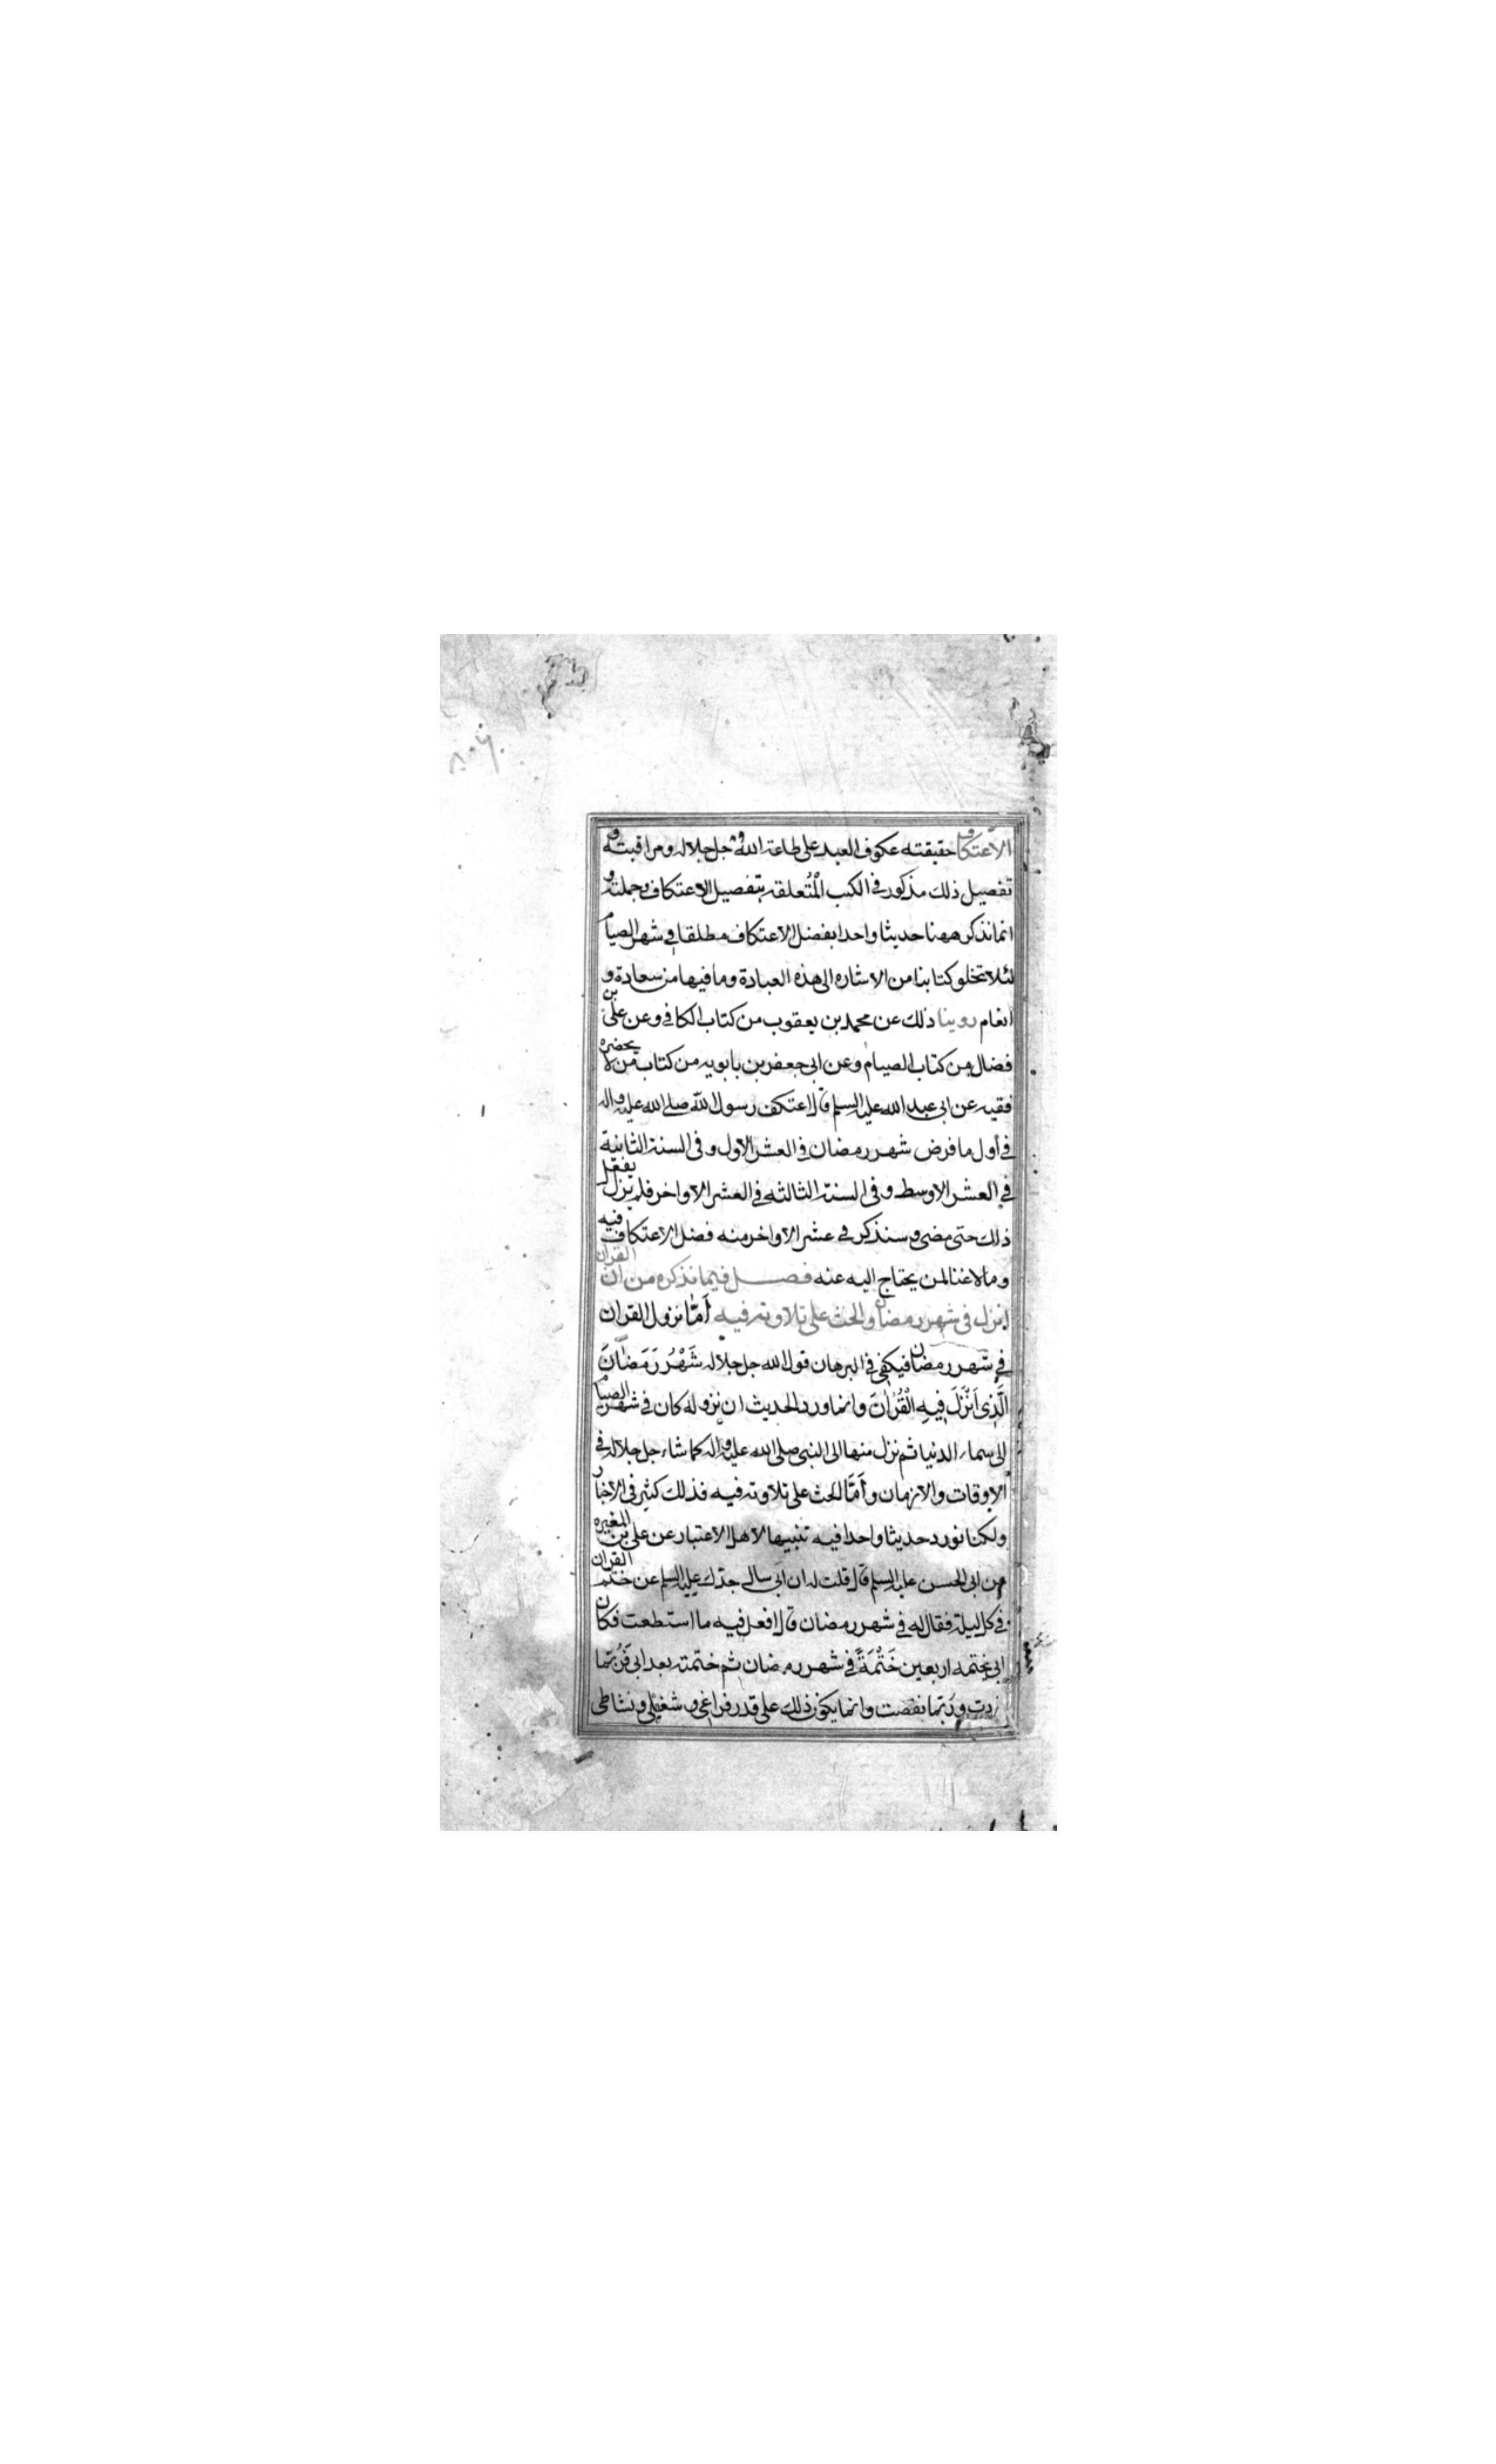 الاعتكاف حقيقته عكوف العبد على طاعة الله جل جلاله ومراقبته و
تفصيل ذلك مذكور في الكتب المُتعلقة بتفصيل الاعتكاف وجملته و
انما نذكر ههنا حديثا واحدا بفضل الاعتكاف مطلقا في شهر الصيام
لئلا تخلو كتابنا من الاشاره الى هذه العبادة وما فيها من سعادة و
انعام روينا ذلك عن محمد بن يعقوب من كتاب الكافي وعن على بن
فضال من كتاب الصيام وعن ابى جعفر بن بابويه من كتاب من لا يحضره
فقيه عن ابى عبد الله عليه السلم قال اعتكف رسول الله صلى الله عليه واله
في أول ما فرض شهر رمضان في العشر الاول وفى السنة الثانية
في العشر الاوسط وفى السنة الثالثه في العشر الاواخر فلم يزل يفعل
ذلك حتى مضى وسنذكر في عشر الاواخر منه فضل الاعتكاف فيه
وما لاغنا لمن يحتاج اليه عنه فصل فيما نذكره من ان القران
انزل فى شهر رمضان والحث على تلاوته فيه أمّا نزول القران
في شهر رمضان فيكفى في البرهان قول الله جل جلاله شَهْرُ رَمَضَانَ
الَّذِى اُنْزِلَ فِيهِ الْقُرْانَ وانما ورد الحديث ان نزوله كان في شهر الصيام
الى سماء الدنيا ثم نزل منها الى النبى صلى الله عليه واله كما شاء جل جلاله في
الاوقات والازمان وأمّا الحث على تلاوته فيه فذلك كثير فى الاخبار
ولكنا نورد حديثا واحدا فيه تنبيها لاهل الاعتبار عن على بن المغيره
من ابى الحسن عليه السلم قال قلت له ان ابى سال جدك عليه السلم عن ختم القران
في كل ليلة فقال له في شهر رمضان قال افعل فيه ما استطعت فكان
ابى يختمه اربعين خَتْمَةً في شهر رمضان ثم ختمته بعد ابى فَرُبّما
زدت ورُبّما نقصت وانما يكون ذلك على قدر فراغى وشغلى ونشاطى